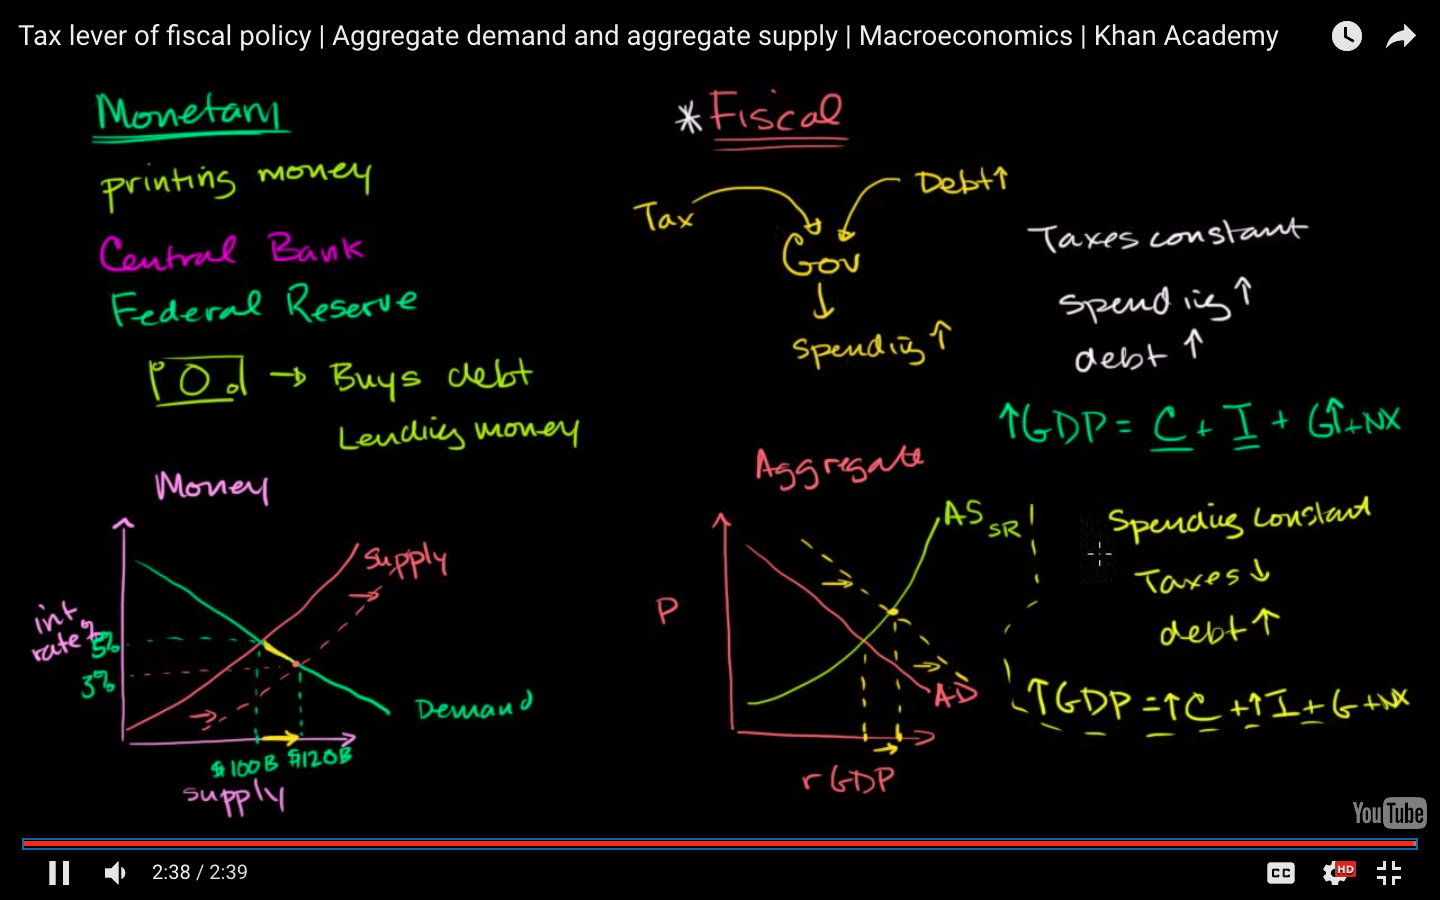 Tax lever of fiscal policy | Aggregate demand and aggregate supply | Macroeconomics | Khan Academy
Monetary
printing money
Central Bank
Federal Reserve
→ Buys debt
Lending money
Money
int rate
5%
3%
supply
Demand
$100B $120B
supply
*Fiscal
Tax
Debt↑
Gov
↓
spending↑
Taxes constant
spending↑
debt↑
↑GDP = C + I + G↑+NX
Aggregate
P
AS SR
AD
rGDP
Spending constant
Taxes↓
debt↑
↑GDP =↑C +↑I + G +NX
YouTube
2:38 / 2:39
CC
HD